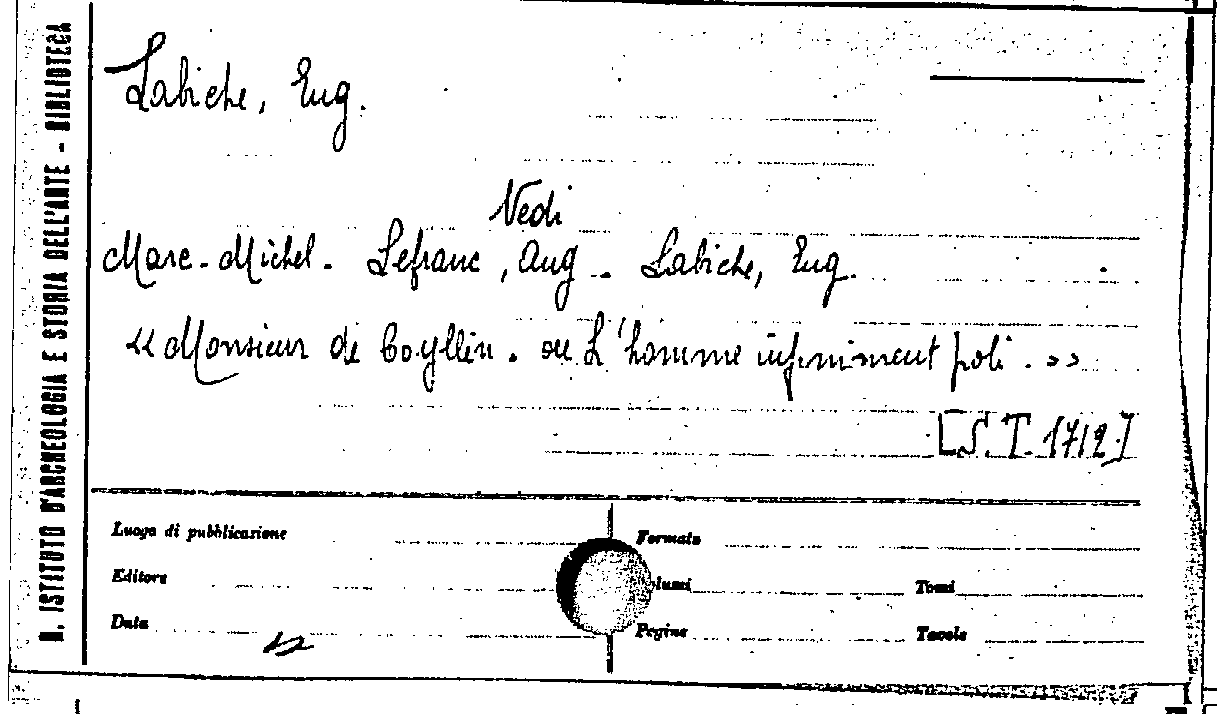 R. ISTITUTO D'ARCHEOLOGIA E STORIA DELL'ARTE - BIBLIOTECA
Labiche, Eug.
Vedi
Marc-Michel - Lefranc, Aug - Labiche, Eug.
«Monsieur de Coyllin. ou L'homme infiniment poli.»
[S.T. 1712]
Luogo di pubblicazione
Formato
Editore
lumi
Tomi
Data
Pagine
Tavole